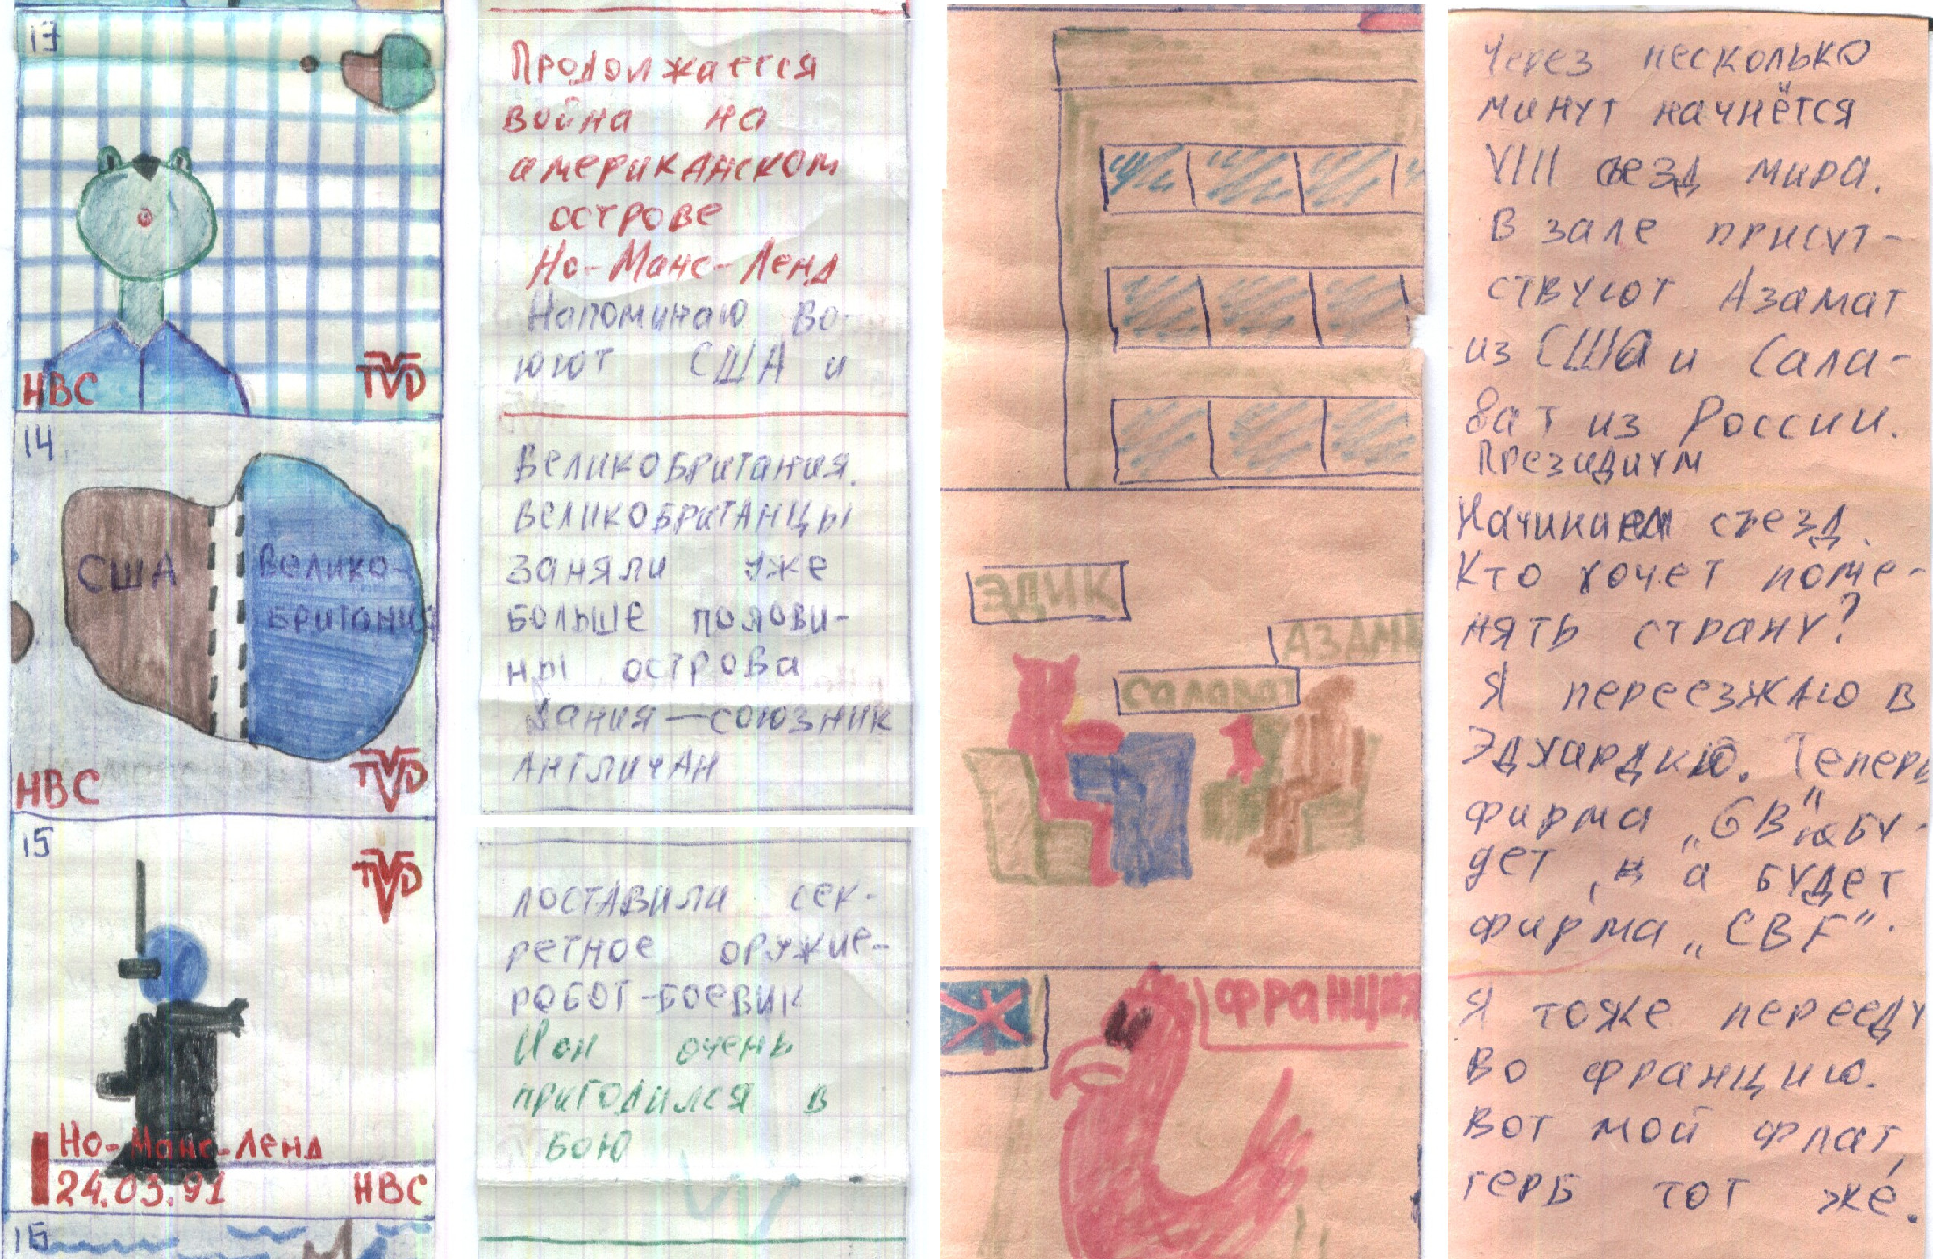 13
НВС
TVD
14
США
Велико-
британия
НВС
TVD
15
TVD
Но-Манс-Ленд
24.03.91
НВС
16
Продолжается
война на
американском
острове
Но-Манс-Ленд
Напоминаю во-
юют США и
Великобритания.
Великобританцы
заняли уже
больше полови-
ны острова
Дания—союзник
англичан
поставили сек-
ретное оружие-
робот-боевик
И он очень
пригодился в
бою
ЭДИК
АЗАМА
Салават
ФРАНЦИЯ
Через несколько
минут начнётся
VIII съезд мира.
В зале присут-
ствуют Азамат
из США и Сала-
ват из России.
Президиум
Начинаем съезд.
Кто хочет поме-
нять страну?
Я переезжаю в
Эдуардию. Теперь
фирма „GB" не бу-
дет, а будет
фирма „CBF".
Я тоже перееду
во францию.
Вот мой флаг,
герб тот же.